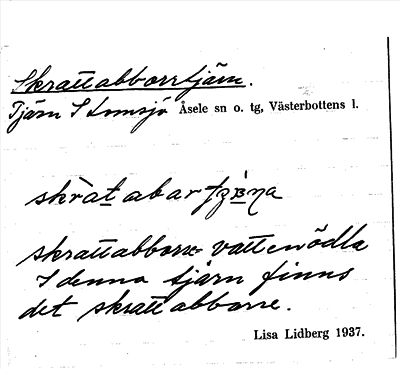 Skrattabborrtjärn.
Tjärn S Lomsjö Åsele sn o. tg, Västerbottens l.
skrattabborre vattenödla
I denna tjärn finns
det skrattabborre.
Lisa Lidberg 1937.